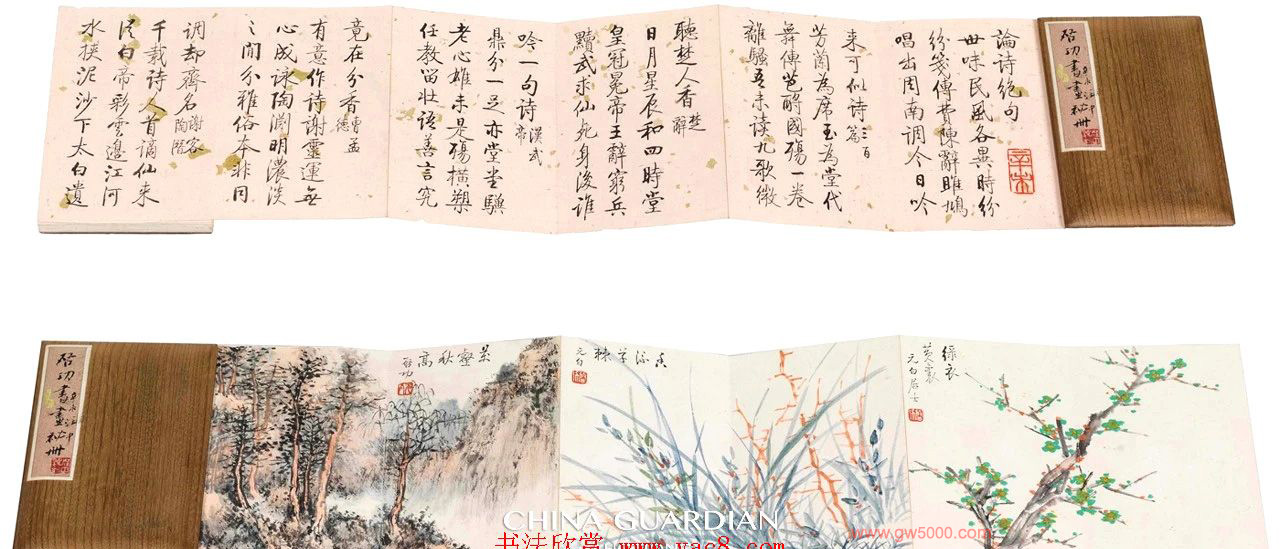 启功書畫袖冊
論詩絕句
世味民風各異時紛
紛箋傳費陳辭雎鳩
唱出周南調今日吟
來可似詩三百篇
芳蘭為席玉為堂代
舞傳芭酹國殤一卷
離騷吾未读九歌微
聽楚人香楚辭
日月星辰和四時堂
皇冠冕帝王辭窮兵
黷武求仙死身後誰
吟一句詩漢武帝
鼎分一足亦堂堂驥
老心雄未是殤橫槊
任教留壯語善言究
竟在分香曹孟德
有意作詩謝靈運無
心成詠陶淵明濃淡
之間分雅俗本非同
调却齊名謝客陶潛
千載詩人首謫仙来
從白帝彩雲邊江河
水挾泥沙下太白遺
綠衣
黃裏
元白居士
元白
壑秋高
启功
启功書畫袖冊
CHINA GUARDIAN
书法欣赏 www.yac8.com
www.gw5000.com